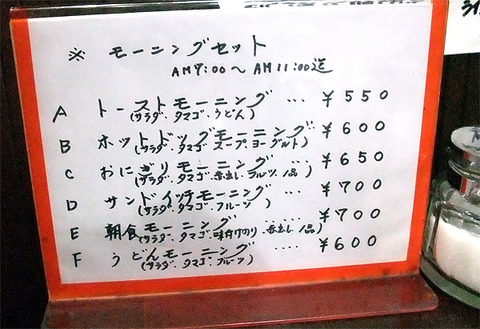 ※ モーニングセット
AM7:00〜AM11:00迄
A トーストモーニング … ¥550
(サラダ、タマゴ、うどん)
B ホットドッグモーニング … ¥600
(サラダ、タマゴ、スープ、ヨーグルト)
C おにぎりモーニング … ¥650
(サラダ、タマゴ、赤出し、フルーツ、1品)
D サンドイッチモーニング … ¥700
(サラダ、タマゴ、フルーツ)
E 朝食モーニング …… ¥700
(サラダ、タマゴ、味付けのり、赤出し、1品)
F うどんモーニング …… ¥600
(サラダ、タマゴ、フルーツ)